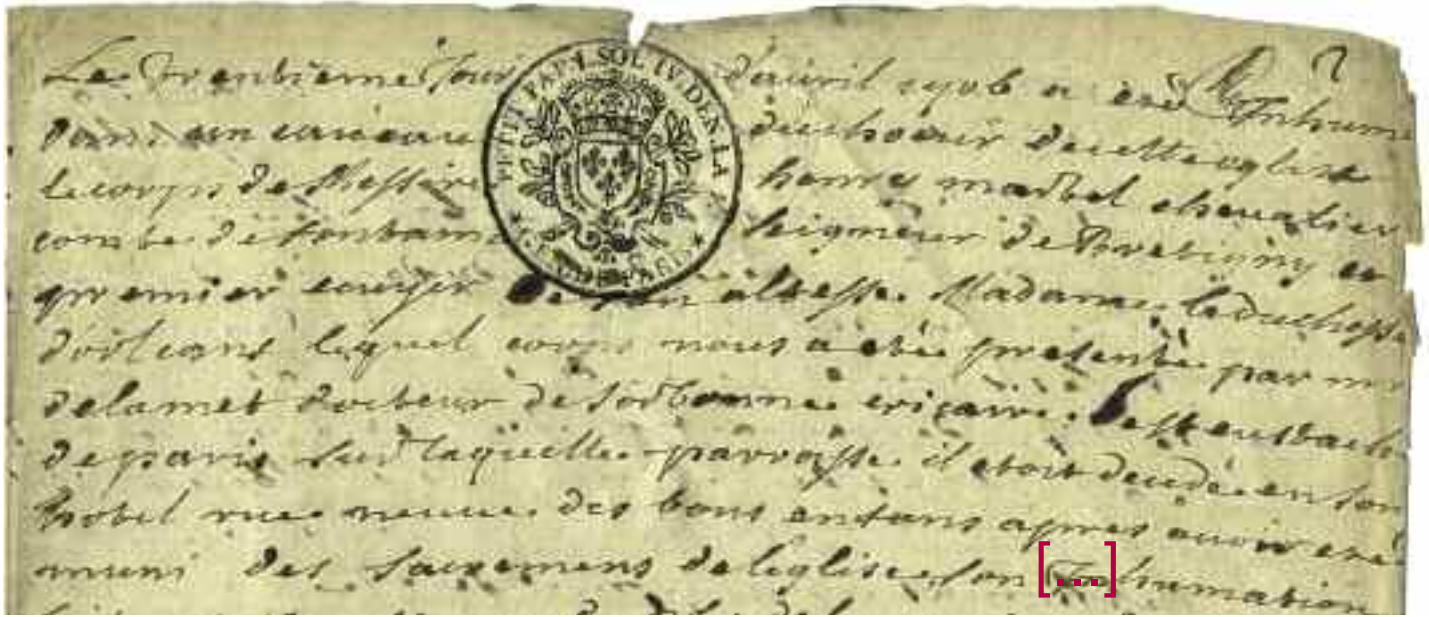 Le trentieme jour d'auril 1706 a esté Inhumé
dans un caueau du choeur de cette eglise
le corps de Messire henry martel cheualier
comte de fontaine seigneur de Bretigny et
premier ecuyer de son altesse Madame la duchesse
d'orleans lequel corps nous a esté presenté par mr
delamet docteur de sorbonne et curé de st eustache
de paris sur laquelle parroisse il etoit decedé en son
hotel rue neuue des bons enfans apres auoir esté
muni des sacremens de leglise son [...]humation